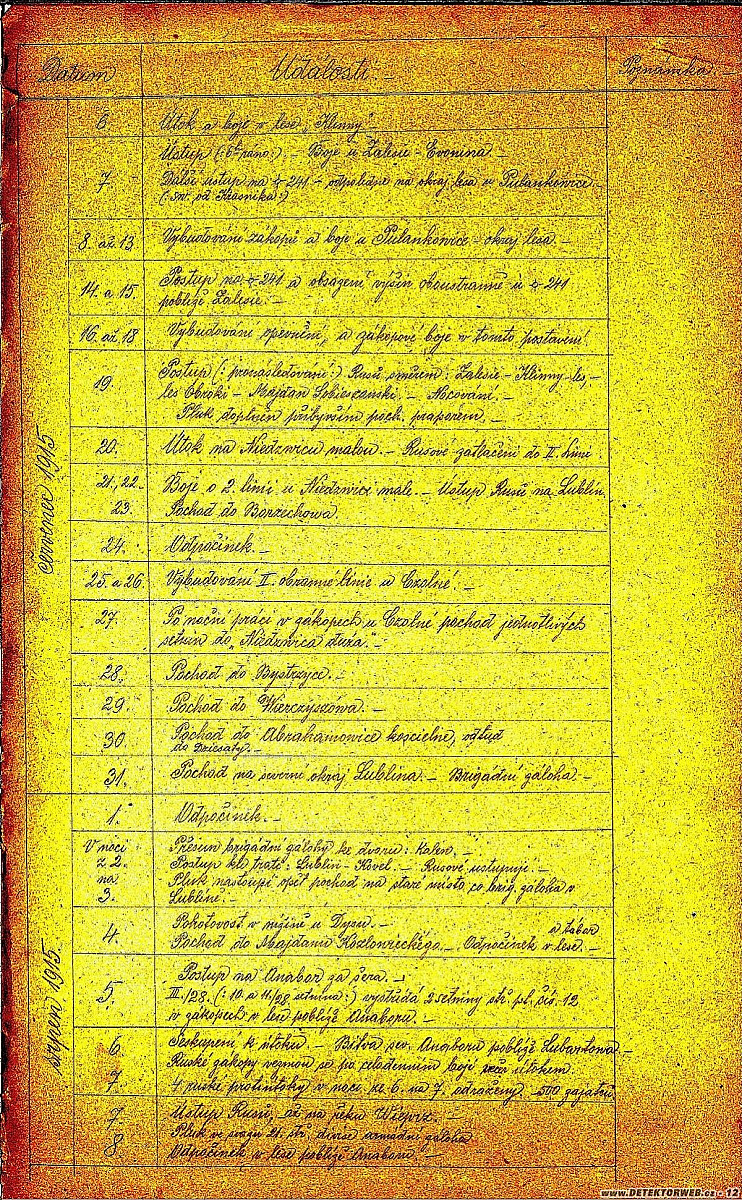 Datum Události. — Poznámka. —
Červenec 1915
6 Útok a boje v lese „Klinny"
7 Ústup (: 6h ráno :). — Boje u Zalesie - Evonina —
Další ústup na ⌖ 241 - odpoledne na okraj lesa v Pulankowice. —
(: sev. od Krasnika :)
8. až 13. Vybudování zákopů a boje u Pulankowice - okraj lesa. —
14. a 15. Postup na ⌖ 241 a obsazení výšin oboustranně u ⌖ 241
poblíže Zalesie. —
16. až 18 Vybudování opevnění, a zákopové boje v tomto postavení
19. Postup (: pronásledování :) Rusů směrem: Zalesie - Klinny - les, -
les Obroki - Majdan Sobieszanski. — Nocování. —
Pluk doplněn přibyvším poch. praporem. —
20. Útok na Niedzwicu malou. — Rusové zatlačeni do II. linie
21., 22. Boje o 2. linii u Niedzwici malé. — Ústup Rusů na Lublin.
23. Pochod do Borzechowa.
24. Odpočinek. —
25. a 26. Vybudování II. obranné linie u Czolné. —
27. Po noční práci v zákopech u Czolné pochod jednotlivých
setnin do „Niedzwica duža." —
28. Pochod do Bystrzyce. —
29. Pochod do Wierczyszówa. —
30. Pochod do Abrahamowice košcielne, odtud
do Dziesaty. —
31. Pochod na severní okraj Lublina. — Brigádní záloha. —
srpen 1915
1. Odpočinek. —
V noci Přesun brigádní zálohy ke dvoru: Kalen. —
z 2. Postup kle tratě: Lublin - Kovel. — Rusové ustupují. —
na Pluk nastoupí opět pochod na staré místo co brig. záloha v
3. Lublině. —
4. Pohotovost v nížině u Dysu. —
Pochod do Majdanu Kozlowieckého. — Odpočinek a tábor v lese. —
5. Postup na Anabor za šera. —
III./28. (: 10. a 11./28 setnina :) vystřídá 2 setniny stř. pl. čís. 12
v zákopech v lese poblíže Anaboru. —
6. Seskupení k útoku. — Bitva sev. Anaboru poblíže Lubartowa. —
Ruské zákopy vezmou se po celodenním boji útokem.
7. 4 ruské protiútoky v noci ze 6. na 7. odraženy. — 500 zajatců
7 Ústup Rusů, až na řeku Wieprz. —
Pluk ve svazu 21. stř. divise armádní záloha
8. Odpočinek v lese poblíže Anaboru. —
www.DETEKTORWEB.cz - 12